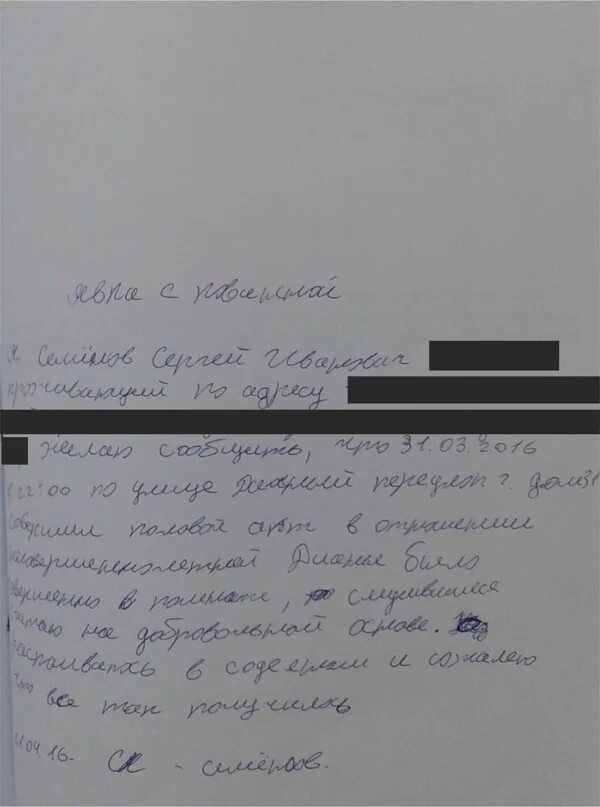 Явка с повинной
Я Семёнов Сергей Иванович
проживающий по адресу
желаю сообщить, что 31.03.2016
в 22:00 по улице Дачный переулок г. дом 31
совершил половой акт в отношении
несовершеннолетней Дианы было
совершенно в палатке, случившиеся
считаю на добровольной основе.
раскаиваюсь в содеяном и сожалею
что все так получилось
04.16. – Семёнов.